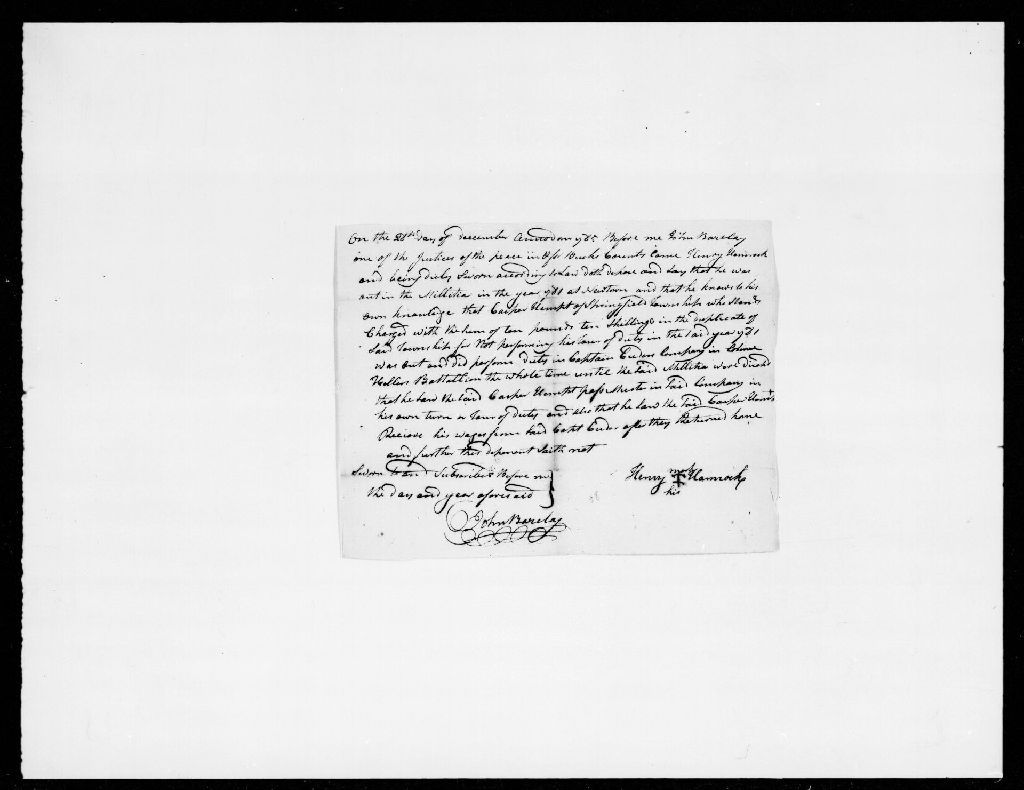 On the 28th day of december Annodom 1785 Before me John Barclay
one of the Justices of the peace in &ss Bucks County Came Henry Hamrock
and being duley Sworn according to Law doth depose and Say that he was
out in the Millitia in the year 1781 at Newtown and that he knows to his
own knowledge that Casper of Springfield township who stands
Charged with the Sum of ten pounds ten Shillings in the duplicate of
Said Township for Not performing his tour of duty in the Said year 1781
was out and did perform duty in Captain Company in
Hellers Battallion the whole time until the Said Millitia were
that he Saw the Said Casper in Said Company in
his own turn or tour of duty and also that he Saw the Said Casper
Recieve his wages from Said Capt after they Returned home
and further this deponent Saith not
Sworn and Subscribed Before me
the day and year aforesaid
Henry mark Hamrock
his
John Barclay